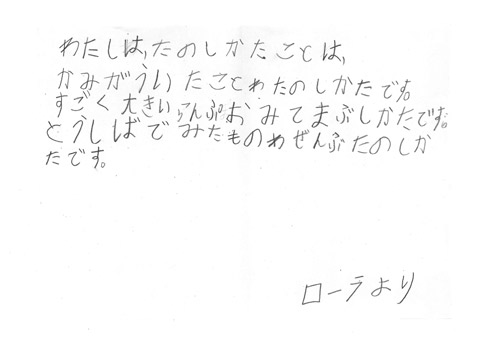 わたしは,たのしかたことは,
かみがういたことわたのしかたです。
すごく大きいらんぷおみてまぶしかたです。
とうしばでみたものわぜんぶたのしか
たです。
ローラより